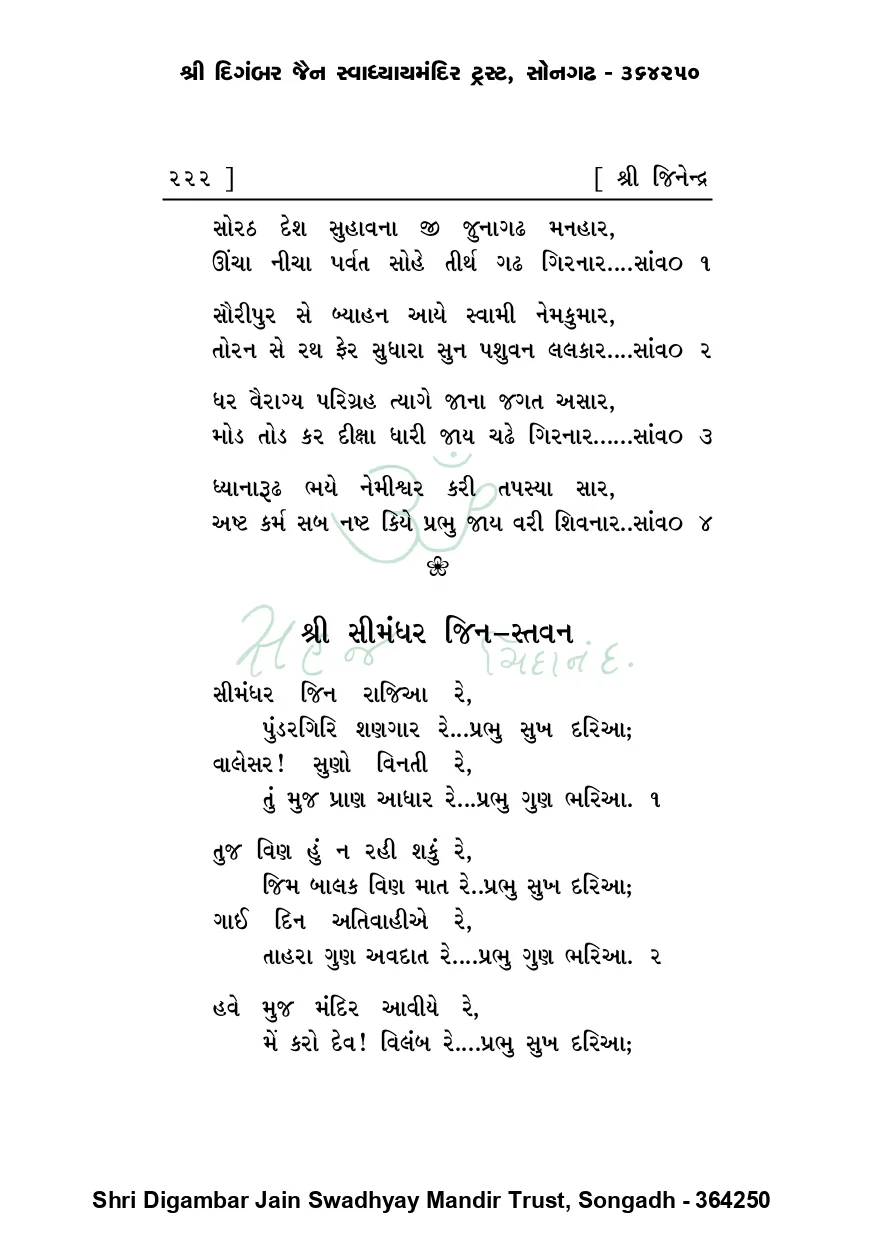 શ્રી દિગંબર જૈન સ્વાધ્યાયમંદિર ટ્રસ્ટ, સોનગઢ - ૩૬૪૨૫૦
૨૨૨ ] [ શ્રી જિનેન્દ્ર
સોરઠ દેશ સુહાવના જી જુનાગઢ મનહાર,
ઊંચા નીચા પર્વત સોહે તીર્થ ગઢ ગિરનાર....સાંવ૦ ૧
સૌરીપુર સે બ્યાહન આયે સ્વામી નેમકુમાર,
તોરન સે રથ ફેર સુધારા સુન પશુવન લલકાર....સાંવ૦ ૨
ધર વૈરાગ્ય પરિગ્રહ ત્યાગે જાના જગત અસાર,
મોડ તોડ કર દીક્ષા ધારી જાય ચઢે ગિરનાર......સાંવ૦ ૩
ધ્યાનારૂઢ ભયે નેમીશ્વર કરી તપસ્યા સાર,
અષ્ટ કર્મ સબ નષ્ટ કિયે પ્રભુ જાય વરી શિવનાર..સાંવ૦ ૪
ૐ
શ્રી સીમંધર જિન–સ્તવન
સહજ ચિદાનંદ.
સીમંધર જિન રાજિઆ રે,
પુંડરગિરિ શણગાર રે...પ્રભુ સુખ દરિઆ;
વાલેસર! સુણો વિનતી રે,
તું મુજ પ્રાણ આધાર રે...પ્રભુ ગુણ ભરિઆ. ૧
તુજ વિણ હું ન રહી શકું રે,
જિમ બાલક વિણ માત રે..પ્રભુ સુખ દરિઆ;
ગાઈ દિન અતિવાહીએ રે,
તાહરા ગુણ અવદાત રે....પ્રભુ ગુણ ભરિઆ. ૨
હવે મુજ મંદિર આવીયે રે,
મેં કરો દેવ! વિલંબ રે....પ્રભુ સુખ દરિઆ;
Shri Digambar Jain Swadhyay Mandir Trust, Songadh - 364250